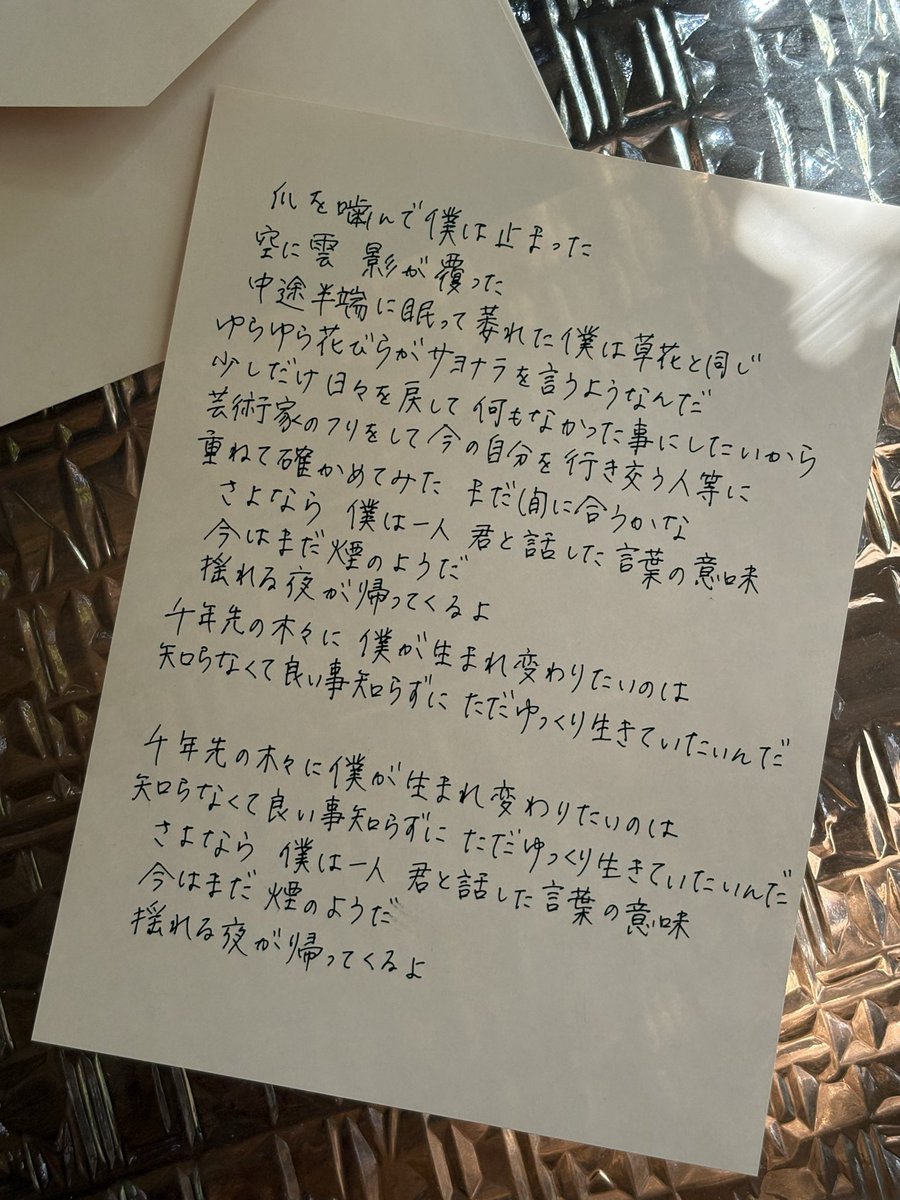 爪を噛んで僕は止まった
空に雲 影が覆った
中途半端に眠って萎れた僕は草花と同じ
ゆらゆら花びらがサヨナラを言うようなんだ
少しだけ日々を戻して何もなかった事にしたいから
芸術家のフリをして今の自分を行き交う人等に
重ねて確かめてみた まだ間に合うかな
さよなら 僕は一人 君と話した言葉の意味
今はまだ煙のようだ
揺れる夜が帰ってくるよ
千年先の木々に 僕が生まれ変わりたいのは
知らなくて良い事知らずに ただゆっくり生きていたいんだ
千年先の木々に僕が生まれ変わりたいのは
知らなくて良い事知らずに ただゆっくり生きていたいんだ
さよなら 僕は一人 君と話した言葉の意味
今はまだ 煙のようだ
揺れる夜が帰ってくるよ